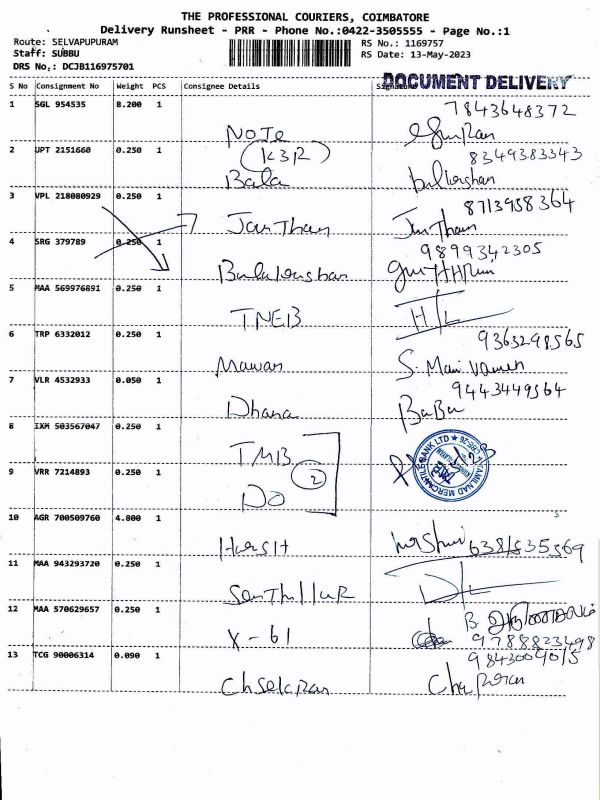 THE PROFESSIONAL COURIERS, COIMBATORE
Delivery Runsheet - PRR - Phone No.:0422-3505555 - Page No.:1
Route: SELVAPUPURAM RS No.: 1169757
Staff: SUBBU RS Date: 13-May-2023
DRS No.: DCJB116975701
DOCUMENT DELIVERY
S No Consignment No Weight PCS Consignee Details
1 SGL 954535 8.200 1 7843648372
NOTE
2 JPT 2151660 0.250 1 (K3R) 8349383343
Bala
3 VPL 218080929 0.250 1 8713958364
Janthan Janthan
4 SRG 379789 0.250 1 9899342305
5 MAA 569976891 0.250 1
TNEB
6 TRP 6332012 0.250 1 9363298565
Mawan
7 VLR 4532933 0.050 1 9443449564
Dhana BaBu
8 IXM 503567047 0.250 1
TMB
TAMILNAD MERCANTILE BANK LTD
9 VRR 7214893 0.250 1 2
DO
10 AGR 700509760 4.800 1
Harsit
11 MAA 943293720 0.250 1
12 MAA 570629657 0.250 1
X-61 9788823498
13 TCG 90006314 0.090 1